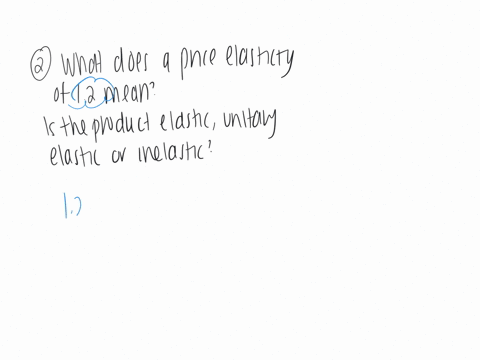 ② What does a price elasticity
of 1.2 mean?
Is the product elastic, unitary
elastic or inelastic?